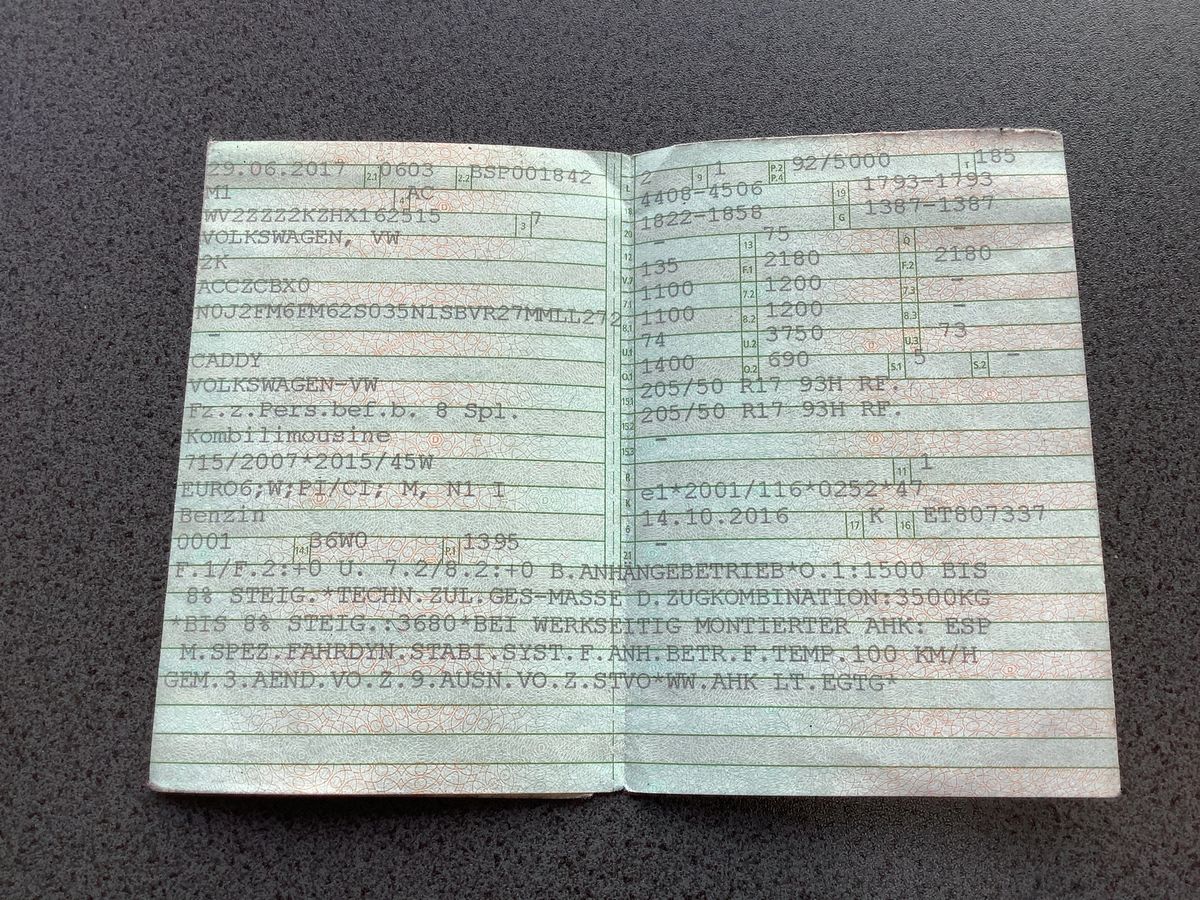 29.06.2017 2.1 0603 2.2 BSP001842
M1 4 AC
WV2ZZZ2KZHX162515 3 7
VOLKSWAGEN, VW
2K
ACCZCBX0
N0J2FM6FM62S035N1SBVR27MMLL272
-
CADDY
VOLKSWAGEN-VW
Fz.z.Pers.bef.b. 8 Spl.
Kombilimousine
715/2007*2015/45W
EURO6;W;PI/CI; M, N1 I
Benzin
0001 14.1 36W0 P.1 1395
L 2 9 1 P.2 P.4 92/5000 T 185
18 4408-4506 19 1793-1793
20 1822-1858 G 1387-1387
12 - 13 75 Q -
V.7 135 F.1 2180 F.2 2180
7.1 1100 7.2 1200 7.3 -
8.1 1100 8.2 1200 8.3 -
U.1 74 U.2 3750 U.3 73
O.1 1400 O.2 690 S.1 5 S.2 -
15.1 205/50 R17 93H RF.
15.2 205/50 R17 93H RF.
15.3 -
R 11 1
K e1*2001/116*0252*47
6 14.10.2016 17 K 16 ET807337
21 -
F.1/F.2:+0 U. 7.2/8.2:+0 B.ANHÄNGEBETRIEB*O.1:1500 BIS
8% STEIG.*TECHN.ZUL.GES-MASSE D.ZUGKOMBINATION:3500KG
*BIS 8% STEIG.:3680*BEI WERKSEITIG MONTIERTER AHK: ESP
M.SPEZ.FAHRDYN.STABI.SYST.F.ANH.BETR.F.TEMP.100 KM/H
GEM.3.AEND.VO.Z.9.AUSN.VO.Z.STVO*WW.AHK LT.EGTG*